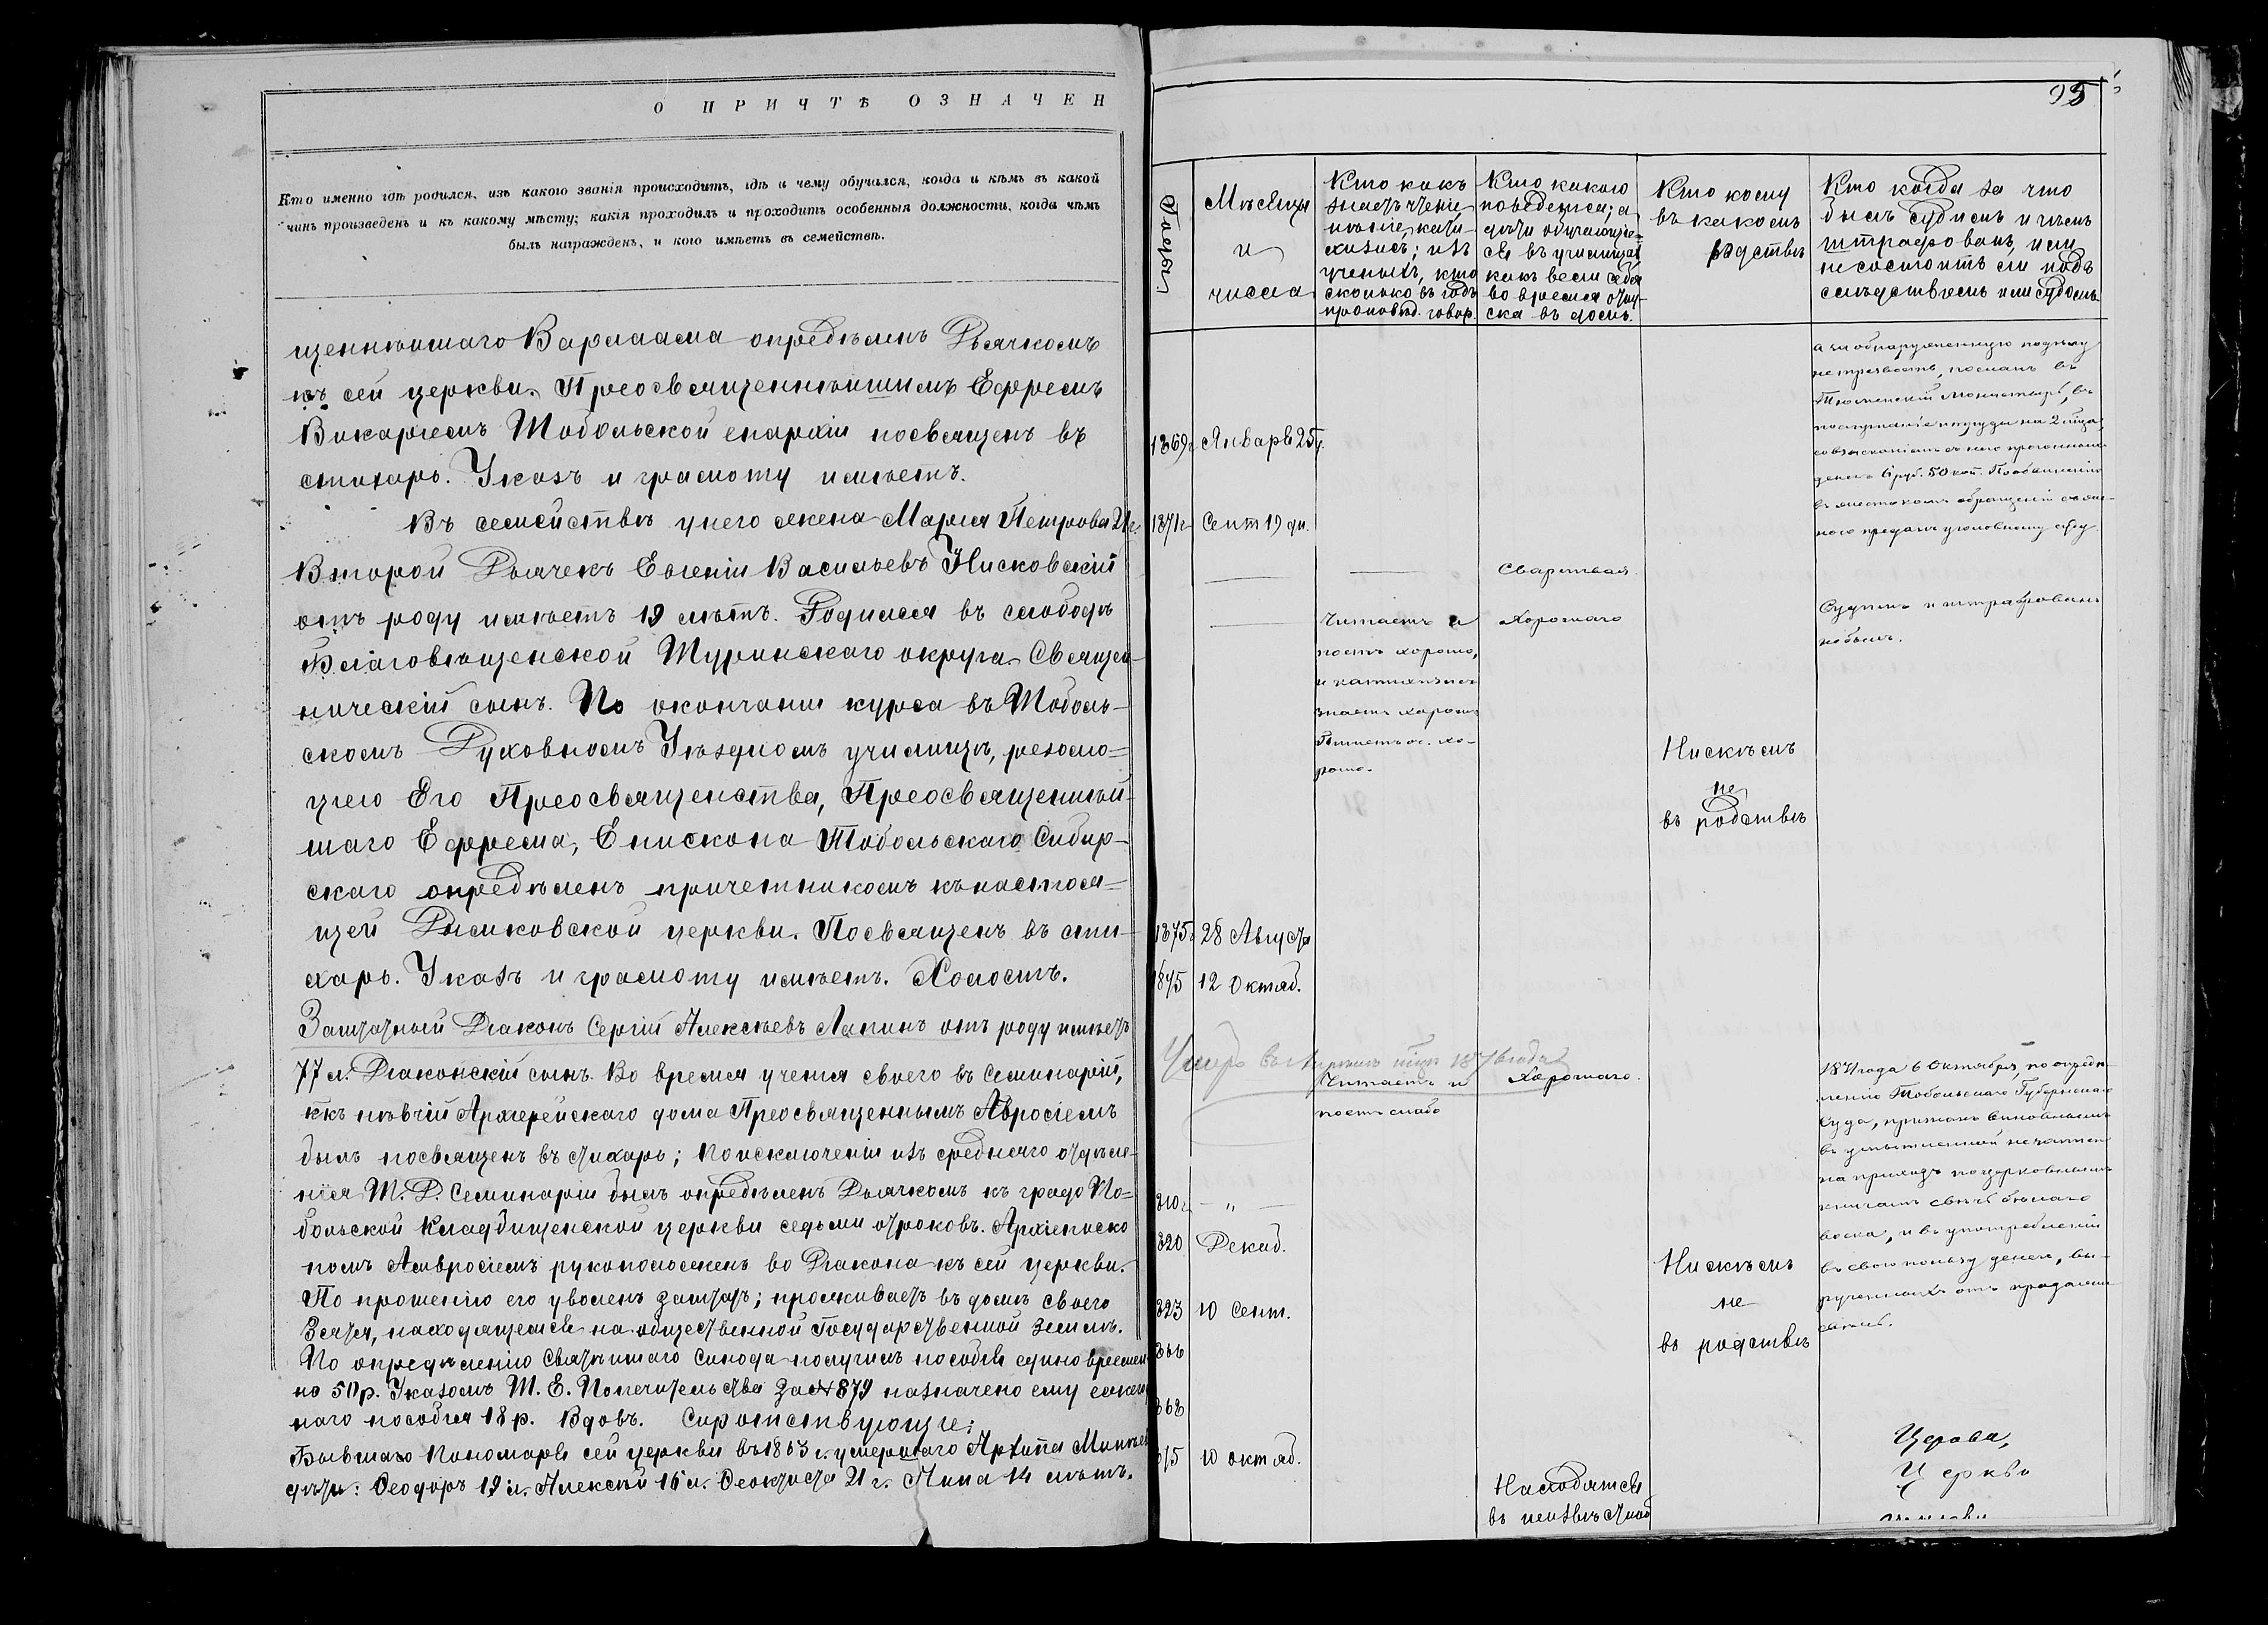 О ПРИЧТѢ ОЗНАЧЕН
Кто именно гдѣ родился, изъ какого званія происходитъ, гдѣ и чему обучался, когда и кѣмъ въ какой
чинъ произведенъ и къ какому мѣсту; какія проходилъ и проходитъ особенныя должности, когда чѣмъ
былъ награжденъ, и кого имѣетъ въ семействѣ.
щеннѣйшаго Варлаама опредѣленъ Дьячкомъ
къ сей церкви. Преосвященнѣйшимъ Ефремъ
Викаріемъ Тобольской епархіи посвященъ въ
стихарь. Указъ и грамоту имѣетъ.
Въ семействѣ у него жена Марія Петрова 21 г.
Второй Дьячекъ Евгеній Васильевъ Нисковскій
отъ роду имѣетъ 19 лѣтъ. Родился въ слободѣ
Благовѣщенской Туринскаго округа. Священ-
ническій сынъ. По окончаніи курса въ Тоболь-
скомъ Духовномъ Уѣздномъ училищѣ, резолю=
ціею Его Преосвященства, Преосвященнѣй-
шаго Ефрема, Епископа Тобольскаго Сибир-
скаго опредѣленъ причетникомъ къ настоя=
щей церкви. Посвященъ въ сти-
харь. Указъ и грамоту имѣетъ. Холостъ.
Заштатный Діаконъ Сергій Алексѣевъ Лапинъ отъ роду имѣетъ
77 л. Діаконскій сынъ. Во время ученія своего въ Семинаріи,
какъ пѣвчій Архіерейскаго дома Преосвященнымъ Авросіемъ
былъ посвященъ въ стихарь; по исключеніи изъ средняго отдѣле-
нія Т. Д. Семинаріи былъ опредѣленъ Дьячкомъ къ градо То=
больской Кладбищенской церкви седьми отроковъ. Архіеписко
помъ Амвросіемъ рукоположенъ во Діакона къ сей церкви.
По прошенію его уволенъ заштатъ; проживаетъ въ домѣ своего
Зятя, находящемся на общественной Государственной землѣ.
По опредѣленію Святѣйшаго Синода получилъ пособія единовремен
но 50 р. Указомъ Т. Е. Попечительства за № 879 назначено ему ежего
наго пособія 18 р. Вдовъ. Сиротствующіе:
Бывшаго Пономаря сей церкви въ 1863 г. умершаго Архипа
дѣти: Ѳеодоръ 19 л. Алексѣй 16 л. Ѳеоктиста 21 г. Анна 14 лѣтъ.
95
Годы
Мѣсяцы
и
числа
Кто какъ
знаетъ чтеніе,
пѣніе, кати-
хизисъ; изъ
ученыхъ, кто
сколько въ годъ
проповѣд. говор.
Кто какого
поведенія; а
дѣти обучающіе=
ся въ училищахъ
какъ вели себя
во время отпу-
ска въ домъ.
Кто кому
въ какомъ
родствѣ
Кто когда за что
былъ судимъ и чѣмъ
штрафованъ, или
не состоитъ ли подъ
слѣдствіемъ или судомъ.
1869 г. Января 25 г.
1871 г. Сент 19 дн.
нетрезвость, посланъ въ
Тюменскій Монастырь, въ
денегъ 6 руб. 50 коп. По обвиненію
въ жестокомъ обращеніи съ же-
ною преданъ уголовному суду.
Сварливая.
Читаетъ и
поетъ хорошо,
и катихизисъ
знаетъ хорошо
Пишетъ ос. хо-
рошо.
Хорошаго
Судимъ и штрафованъ
не былъ.
Ни скѣмъ
не
въ родствѣ
1875 г. 28 Августа
1875 12 Октяб.
Умеръ въ
Читаетъ и
поетъ слабо
Хорошаго.
18 года 6 Октября, по опредѣ
ленію Тобольскаго Губернскаго
Суда, признанъ виновнымъ
на приходъ по церковнымъ
книгамъ свѣчъ бѣлаго
воска, и въ употребленіи
въ свою пользу денегъ, вы-
рученныхъ отъ продажи
810 г. — „ —
820 Декаб.
823 10 Сент.
866
868
875 10 октяб.
Ни скѣмъ
не
въ родствѣ
Находятся
въ неизвѣстной
Церкви